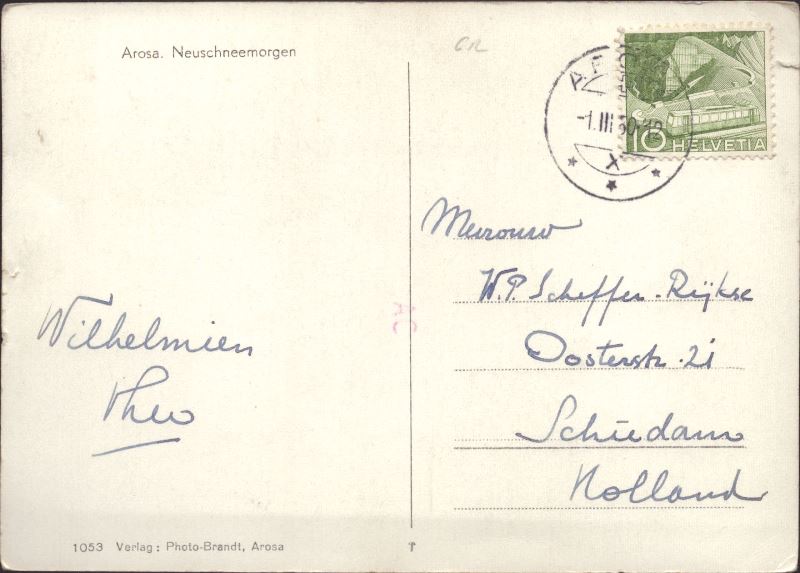 Arosa. Neuschneemorgen
GR
AROSA
-1.III.50-12
X
10 HELVETIA
Mevrouw
W.P. Scheffer-Rijkse
Oosterstr. 21
Schiedam
Holland
Wilhelmien
Theo
1053 Verlag: Photo-Brandt, Arosa